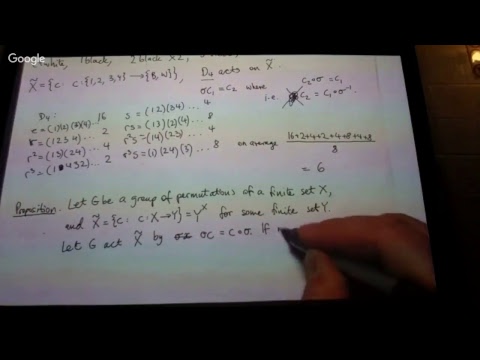 Google
white, 1 black, 2 black x2,
X̃ = {c : c: {1, 2, 3, 4} → {B, W}}, D₄ acts on X̃.
σC₁ = C₂ where C₂∘σ = C₁
i.e. C₂ = C₁∘σ⁻¹
D₄:
e = (1)(2)(3)(4) ... 16 s = (12)(34) ... 4
r = (1234) ... 2 rs = (13)(2)(4) ... 8
r² = (13)(24) ... 4 r²s = (14)(23) ... 4
r³ = (1432) ... 2 r³s = (1)(24)(3) ... 8
on average 16+2+4+2+4+8+4+8
8
= 6
Proposition. Let G be a group of permutations of a finite set X,
and X̃ = {c : c: X → Y} = Y^X for some finite set Y.
Let G act X̃ by σC = C∘σ. If